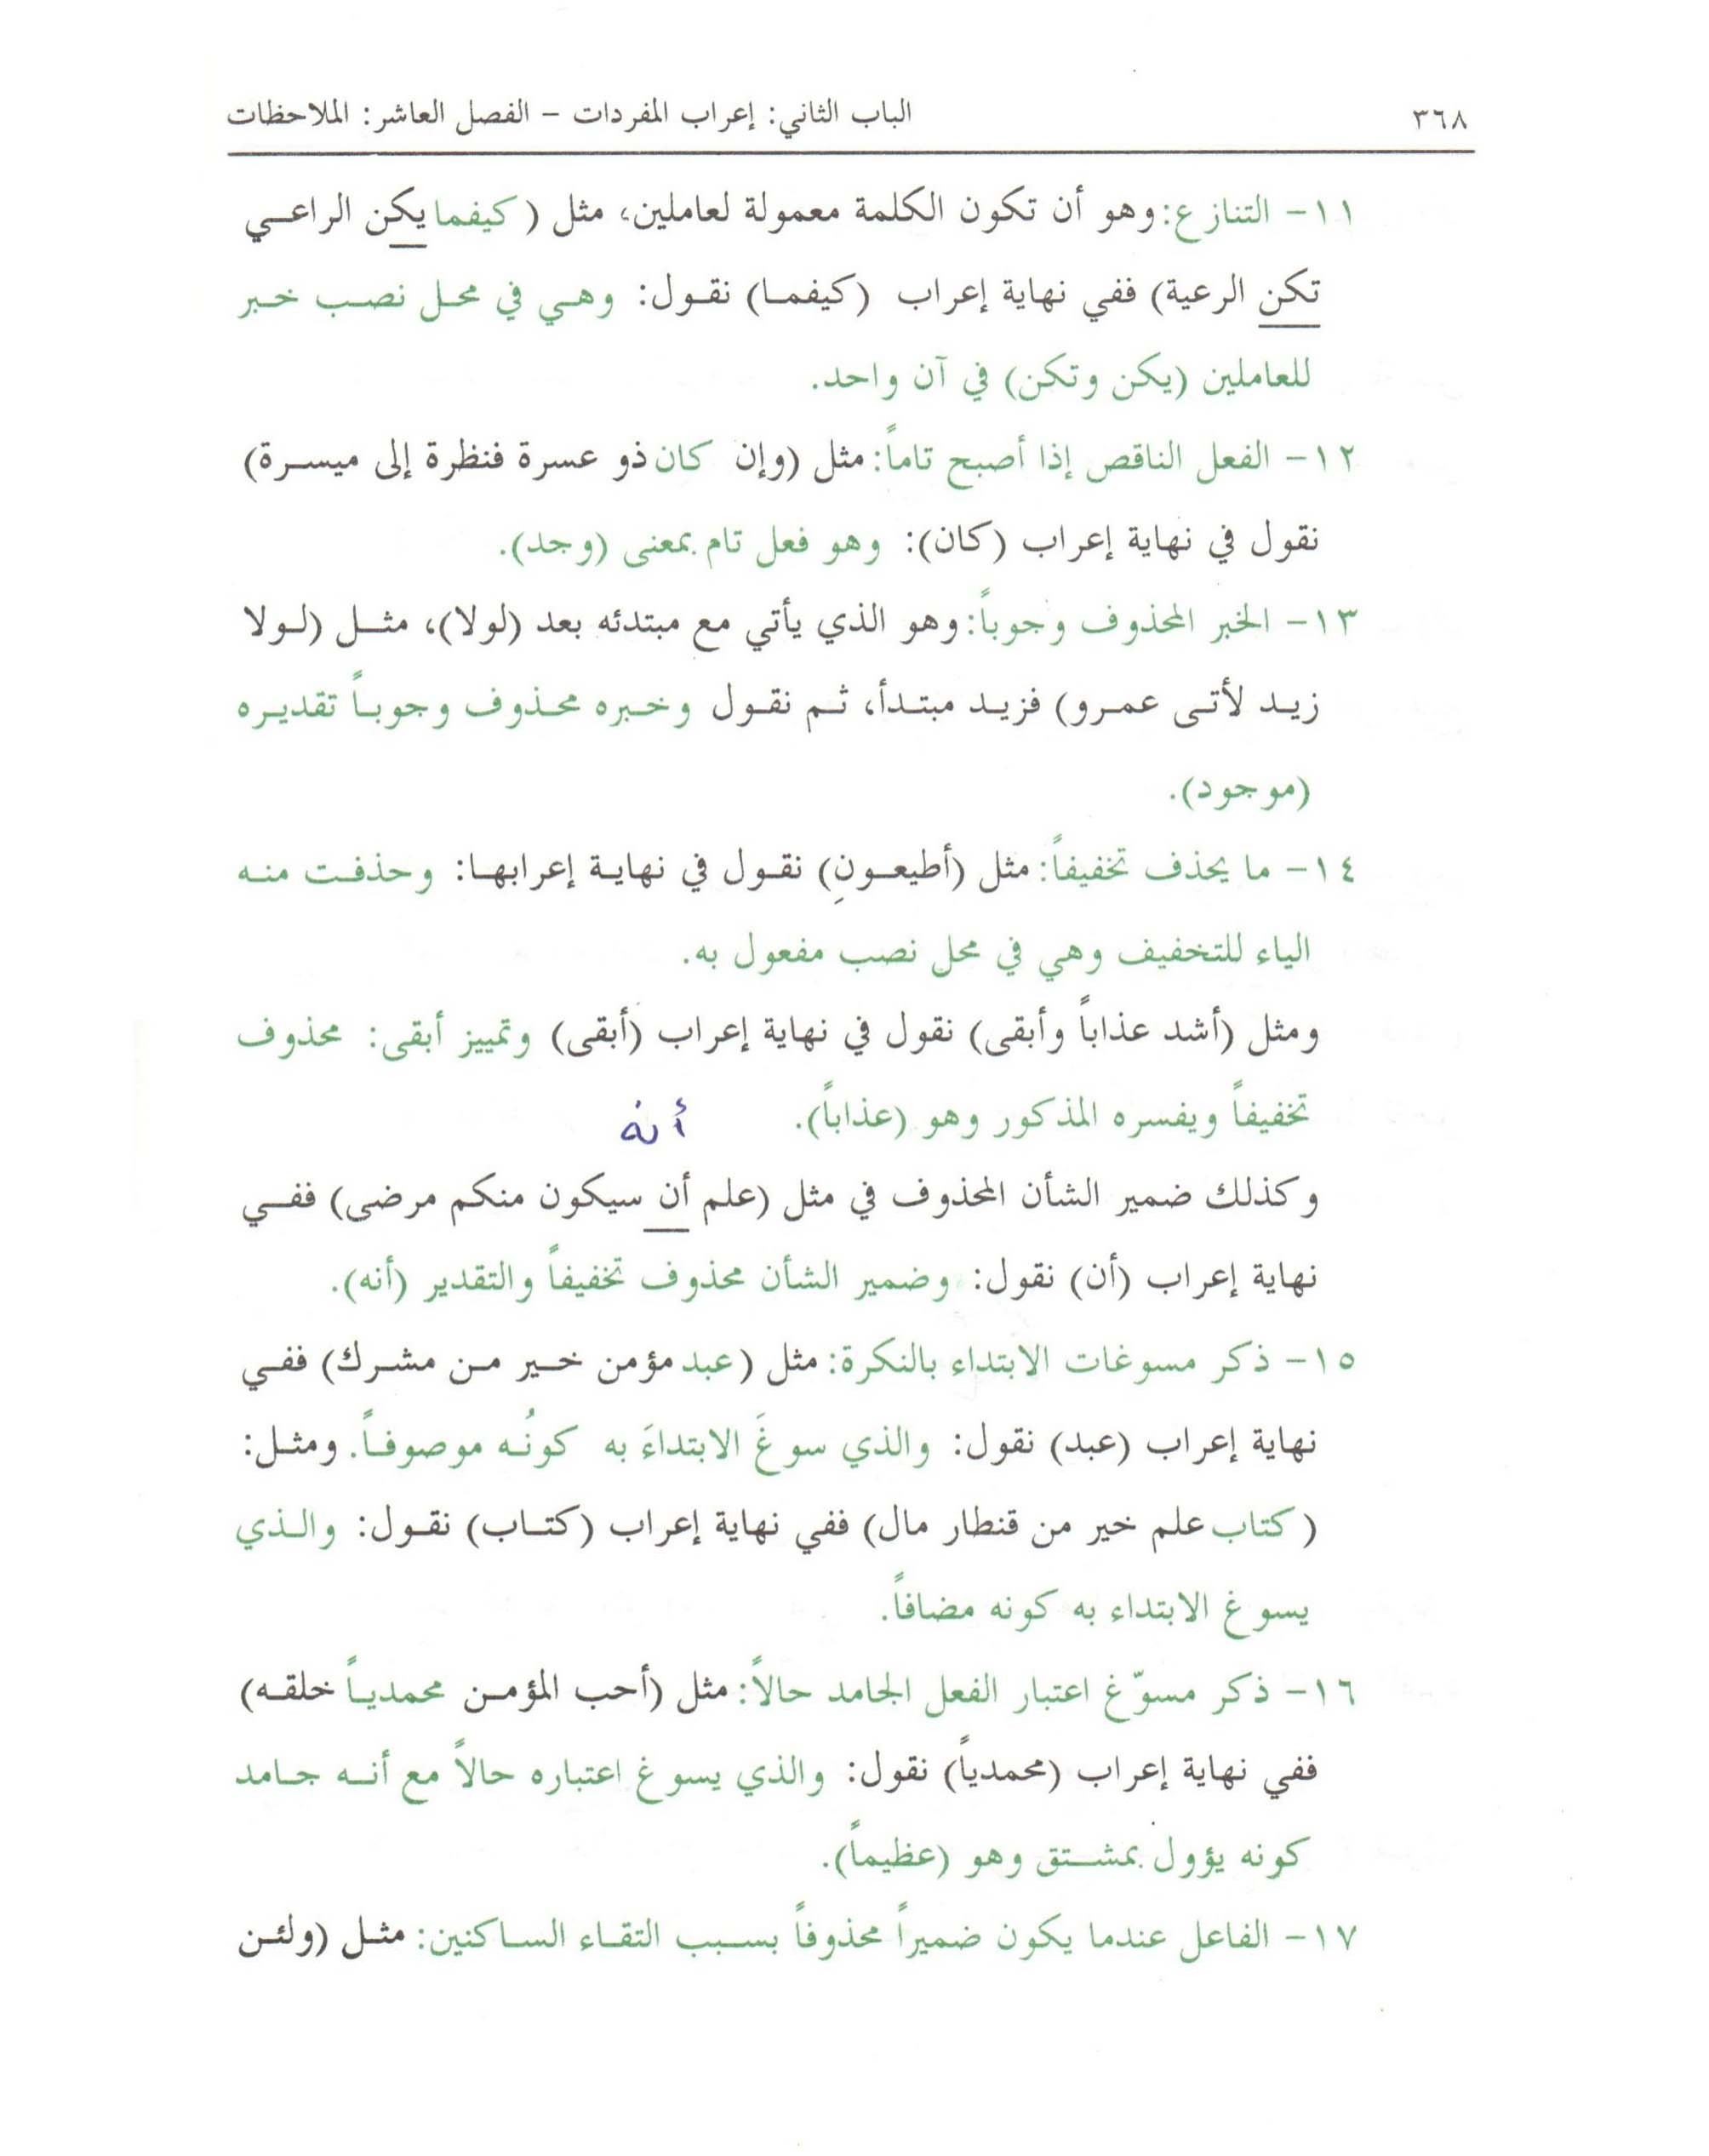 ٣٦٨ الباب الثاني: إعراب المفردات – الفصل العاشر: الملاحظات
١١- التنازع: وهو أن تكون الكلمة معمولة لعاملين، مثل (كيفما يكن الراعي
تكن الرعية) ففي نهاية إعراب (كيفما) نقول: وهي في محل نصب خبر
للعاملين (يكن وتكن) في آن واحد.
١٢- الفعل الناقص إذا أصبح تاماً: مثل (وإن كان ذو عسرة فنظرة إلى ميسرة)
نقول في نهاية إعراب (كان): وهو فعل تام بمعنى (وجد).
١٣- الخبر المحذوف وجوباً: وهو الذي يأتي مع مبتدئه بعد (لولا)، مثل (لولا
زيد لأتى عمرو) فزيد مبتدأ، ثم نقول وخبره محذوف وجوباً تقديره
(موجود).
١٤- ما يحذف تخفيفاً: مثل (أطيعونِ) نقول في نهاية إعرابها: وحذفت منه
الياء للتخفيف وهي في محل نصب مفعول به.
ومثل (أشد عذاباً وأبقى) نقول في نهاية إعراب (أبقى) وتمييز أبقى: محذوف
تخفيفاً ويفسره المذكور وهو (عذاباً).
أنه
وكذلك ضمير الشأن المحذوف في مثل (علم أن سيكون منكم مرضى) ففي
نهاية إعراب (أن) نقول: وضمير الشأن محذوف تخفيفاً والتقدير (أنه).
١٥- ذكر مسوغات الابتداء بالنكرة: مثل (عبد مؤمن خير من مشرك) ففي
نهاية إعراب (عبد) نقول: والذي سوغَ الابتداءَ به كونُه موصوفاً. ومثل:
(كتاب علم خير من قنطار مال) ففي نهاية إعراب (كتاب) نقول: والذي
يسوغ الابتداء به كونه مضافاً.
١٦- ذكر مسوّغ اعتبار الفعل الجامد حالاً: مثل (أحب المؤمن محمدياً خلقه)
ففي نهاية إعراب (محمدياً) نقول: والذي يسوغ اعتباره حالاً مع أنه جامد
كونه يؤول بمشتق وهو (عظيماً).
١٧- الفاعل عندما يكون ضميراً محذوفاً بسبب التقاء الساكنين: مثل (ولئن